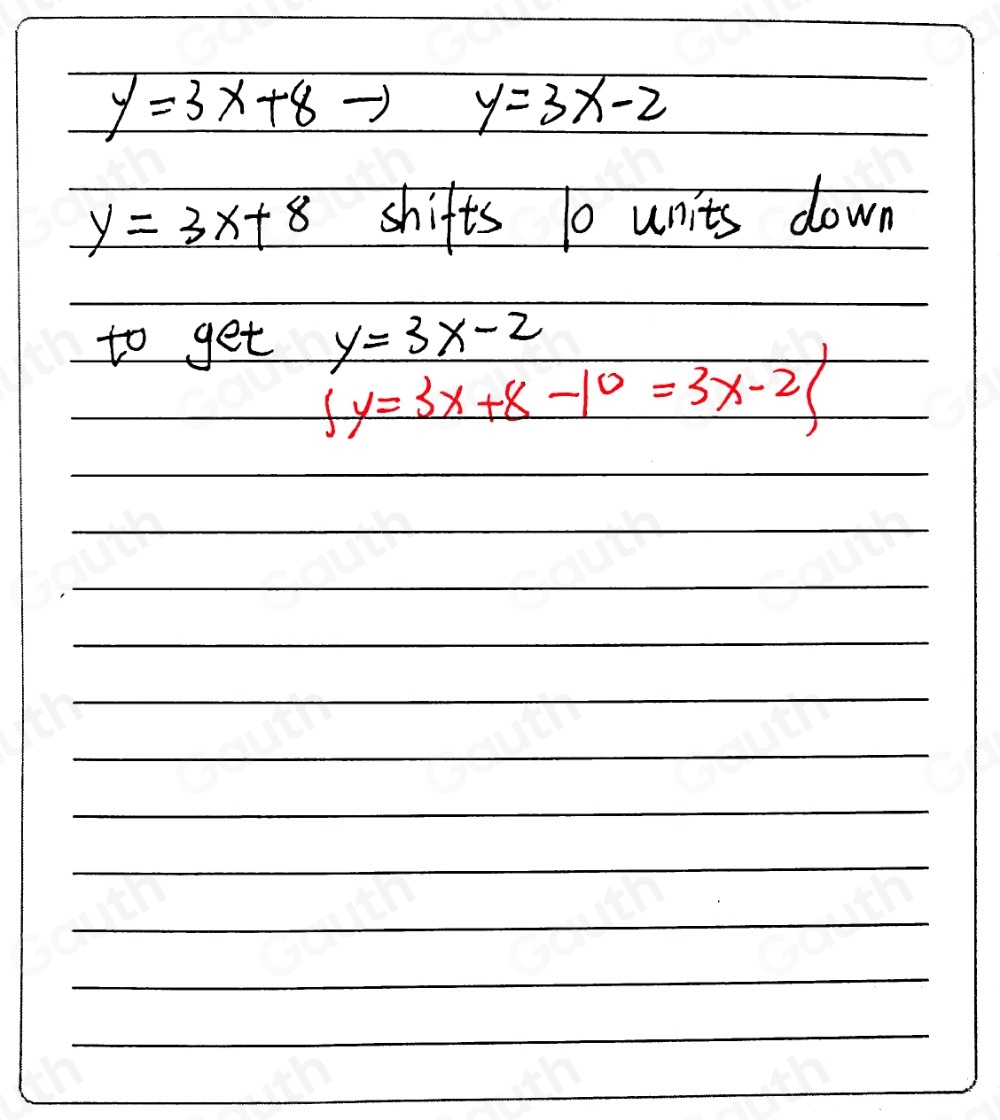 y = 3x+8 → y = 3x-2
y = 3x+8 shifts 10 units down
to get y = 3x-2
{y = 3x+8-10 = 3x-2}
Gauth